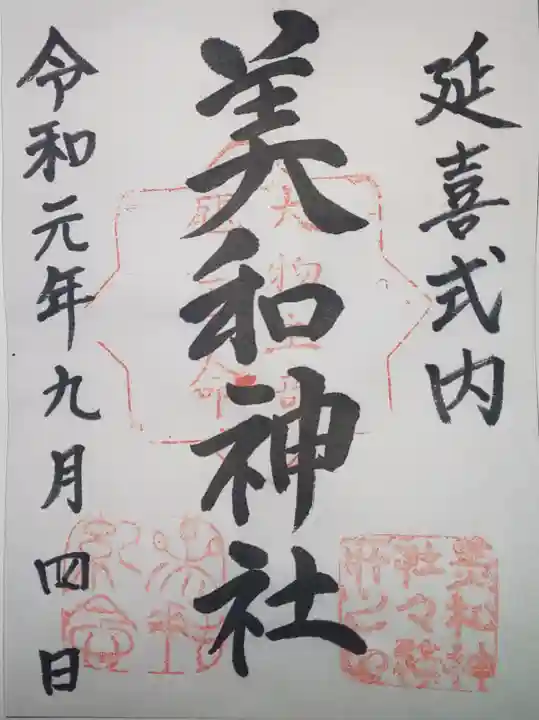 延喜式内
美和神社
令和元年九月四日